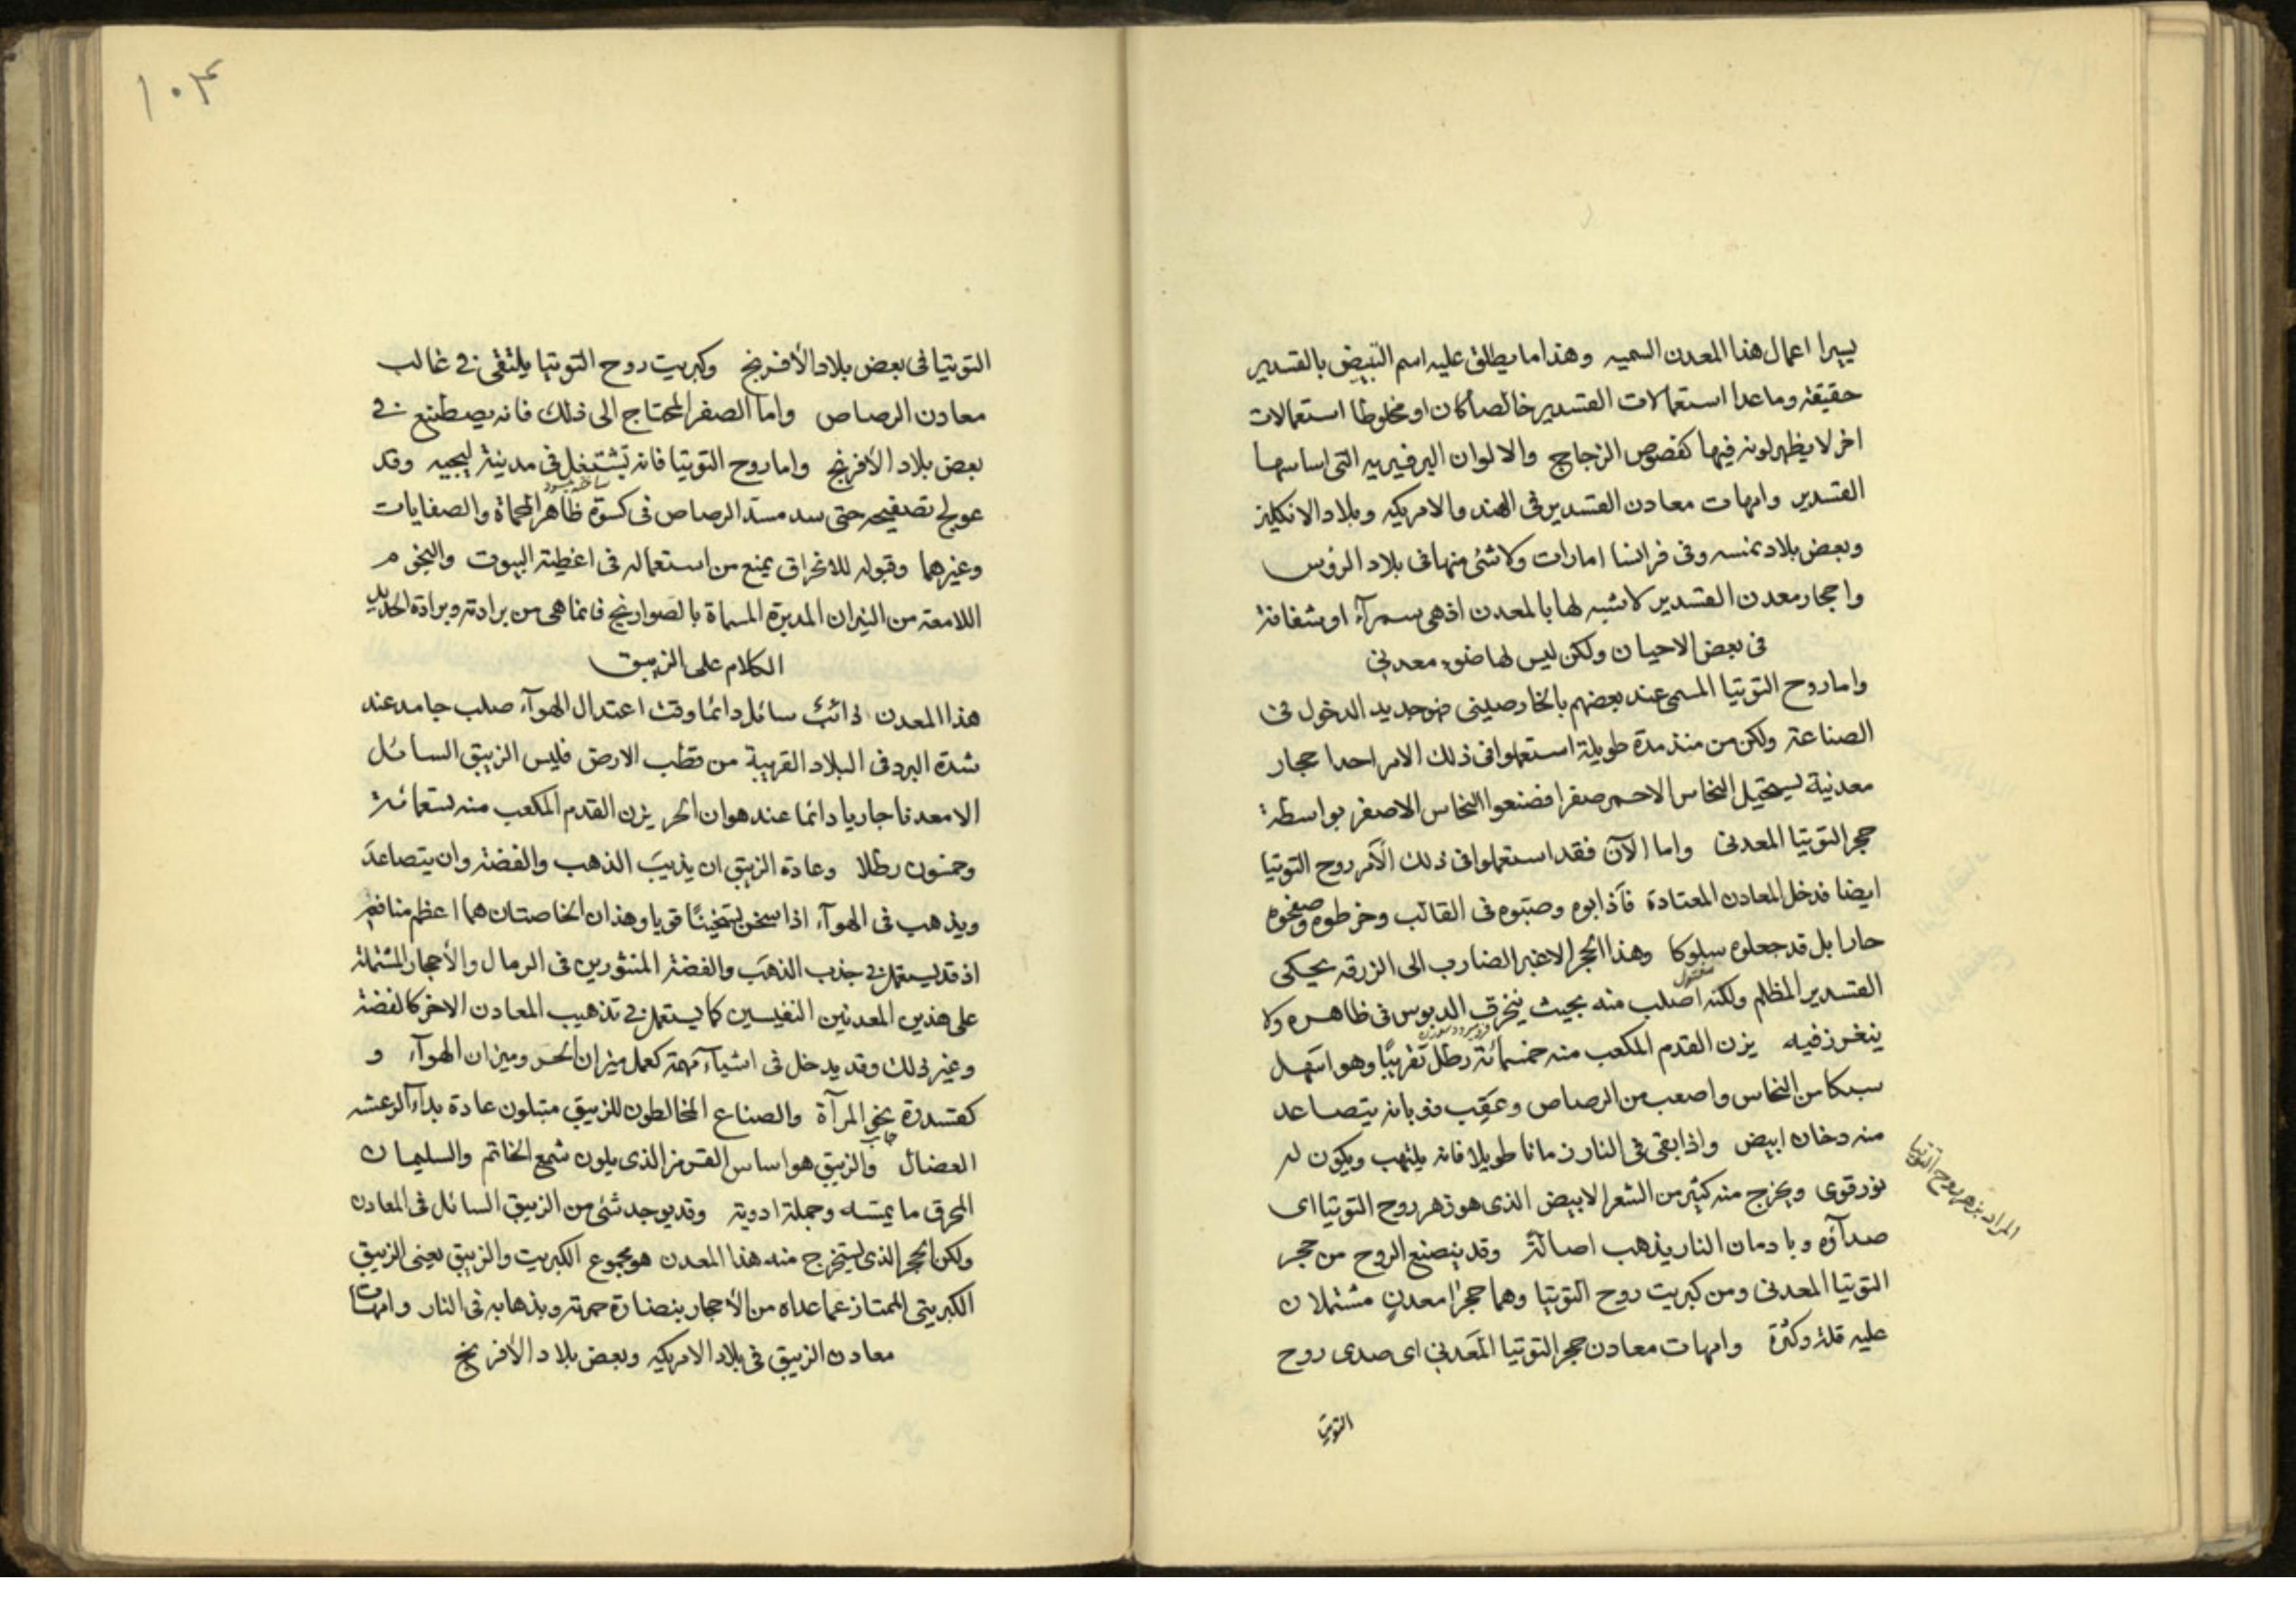 يبرا اعمال هذا المعدن السميه وهذا ما يطلق عليه اسم التبيض بالقسدير
حقيقة وما عدا استعمالات القسدير خالصا كان او مخلوطا استعمالات
اخر لا يظهر لونه فيها كفصوص الزجاج والالوان البرفيريه التى اساسها
القسدير وامهات معادن القسدير فى الهند والامريكه وبلاد الانكليز
وبعض بلاد نمسه وفى فرانسا امارات ولا شئ منها فى بلاد الروس
واحجار معدن القسدير لا شبه لها بالمعدن اذ هى سمرآء او شفافة
فى بعض الاحيان ولكن ليس لها ضوء معدنى
واما روح التوتيا المسمى عند بعضهم بالخارصينى فهو جديد الدخول فى
الصناعة ولكن من منذ مدة طويلة استعملوا فى ذلك الامر احد احجار
معدنية ليستحيل النحاس الاحمر صفرا فصنعوا النحاس الاصفر بواسطة
حجر التوتيا المعدنى واما الآن فقد استعملوا فى ذلك الأمر روح التوتيا
ايضا فدخل المعادن المعتادة فأذابوه وصبّوه فى القالب وخرطوه وصفحوه
حارا بل قد جعلوه سلوكا وهذا الحجر الاغبر الضارب الى الزرقه يحكى
القسدير المظلم ولكنه اصلب منه بحيث ينخرق الدبوس فى ظاهره ولا
ينغرز فيه يزن القدم المكعب منه خمسمائة رطل تقريبًا وهو اسهل
سبكا من النحاس واصعب من الرصاص وعقيب ذوبانه يتصاعد
منه دخان ابيض واذا بقى فى النار زمانا طويلا فانه يلتهب ويكون له
نور قوى ويخرج منه كثير من الشعر الابيض الذى هو زهر روح التوتيا اى
المراد بزهر روح التوتيا
صدآؤه وبادمان النار يذهب اصالةً وقد يصنع الروح من حجر
التوتيا المعدنى ومن كبريت روح التوتيا وهما حجرا معدنٍ مشتملان
عليه قلة وكثرة وامهات معادن حجر التوتيا المَعدنى اى صدى روح
التوتيا
١٠٣
التوتيا فى بعض بلاد الأفرنج وكبريت روح التوتيا يلتقى فى غالب
معادن الرصاص واما الصفر المحتاج الى ذلك فانه يصطنع فى
بعض بلاد الأفرنج واما روح التوتيا فانه تشتغل فى مدينة ليجيه وقد
عولج تصفيحه حتى سد مسدّ الرصاص فى كسوة ظاهر المحماة والصفايات
وغيرهما وقبوله للاغراق يمنع من استعماله فى اغطية البيوت والنجوم
اللامعة من النيران المدبرة المسماة بالصواريخ فانما هى من برادته وبرادة الحديد
الكلام على الزيبق
هذا المعدن ذائب سائل دائما وقت اعتدال الهوآء صلب جامد عند
شدة البرد فى البلاد القريبة من قطب الارض فليس الزيبق السائل
الا معدنا جاريا دائما عند هوان الحر يزن القدم المكعب منه تسعمائة
وخمسون رطلا وعادة الزيبق ان يذيبَ الذهب والفضة وان يتصاعدَ
ويذهب فى الهوآء اذا سخن تسخينًا قويا وهذان الخاصتان هما اعظم منافعه
اذ قد يستعمل فى جذب الذهَب والفضة المنثورين فى الرمال والأحجار المشتملة
على هذين المعدنين النفيسين كما يستعمل فى تذهيب المعادن الاخر كالفضة
وغير ذلك وقد يدخل فى اشيآء مهمة كعمل ميزان الحر وميزان الهوآء و
كقسدرة نحو المرآة والصناع المخالطون للزيبق مبتلون عادة بدآء الرعشه
العضال والزيبق هو اساس القرمز الذى يلون شمع الخاتم والسليمان
المحرق ما يمسّه وجملة ادوية وقد يوجد شئ من الزيبق السائل فى المعادن
ولكن الحجر الذى يستخرج منه هذا المعدن هو مجموع الكبريت والزيبق يعنى الزيبق
الكبريتى الممتاز عما عداه من الأحجار بنضارة حمرته وبذهابه فى النار وامهات
معادن الزيبق فى بلاد الامريكه وبعض بلاد الأفرنج